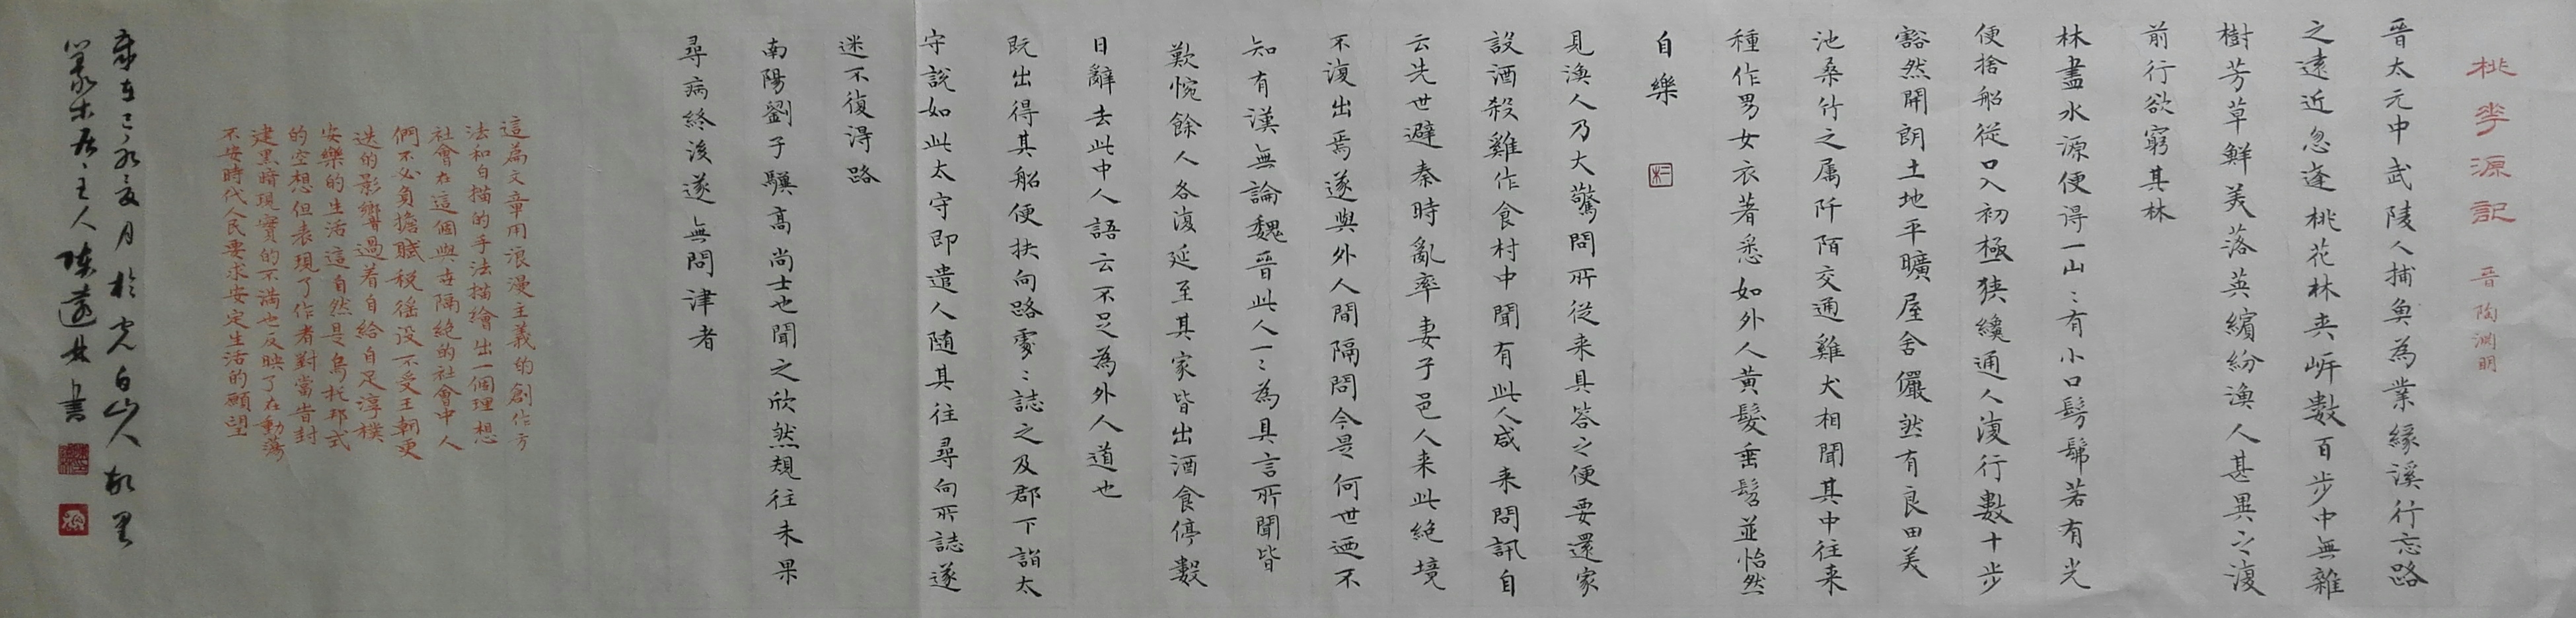 桃花源記 晉陶淵明
晉太元中武陵人捕魚為業緣溪行忘路
之遠近忽逢桃花林夹岸數百步中無雜
樹芳草鮮美落英繽紛漁人甚異之復
前行欲窮其林
林盡水源便得一山〻有小口髣髴若有光
便捨船從口入初極狹纔通人復行數十步
豁然開朗土地平曠屋舍儼然有良田美
池桑竹之属阡陌交通雞犬相聞其中往来
種作男女衣著悉如外人黃髮垂髫並怡然
自樂
見漁人乃大驚問所從来具答之便要還家
設酒殺雞作食村中聞有此人咸来問訊自
云先世避秦時亂率妻子邑人来此絶境
不復出焉遂與外人間隔問今是何世迺不
知有漢無論魏晉此人一〻為具言所聞皆
歎惋餘人各復延至其家皆出酒食停數
日辭去此中人語云不足為外人道也
既出得其船便扶向路處〻誌之及郡下詣太
守說如此太守即遣人隨其往尋向所誌遂
迷不復得路
南陽劉子驥高尚士也聞之欣然規往未果
尋病終後遂無問津者
這篇文章用浪漫主義的創作方
法和白描的手法描繪出一個理想
社會在這個與世隔絶的社會中人
們不必負擔賦稅徭役不受王朝更
迭的影響過着自給自足淳樸
安樂的生活這自然是烏托邦式
的空想但表現了作者對當時封
建黑暗現實的不滿也反映了在動蕩
不安時代人民要求安定生活的願望
月於白山人
主人陳遠林書